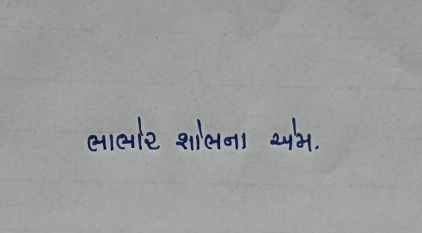 ભાભોર શોભના એમ.